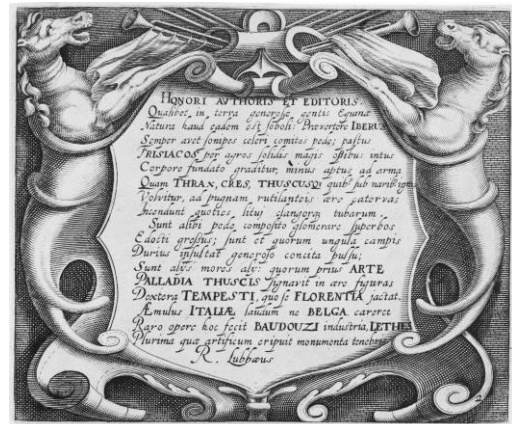 HONORI AVTHORIS ET EDITORIS.
Qualibet in terra generosæ gentis Equinæ
Natura haud eadem est soboli: Prævertere IBERUS
Semper avet sonipes celeri comites pede; pastus
FRISIACOS per agros solidis magis ossibus intus
Corpore fundato graditur, minus aptus ad arma
Quam THRAX, CRES, THUSCUSQ; quib' sub narib' ignis
Volvitur, ad pugnam rutilanteis ære catervas
Incendunt quoties litui clangorq; tubarum.
Sunt alibi pede composito glomerare superbos
Edocti gressus; sunt et quorum ungula campis
Durius insultat generoso concita pulsu;
Sunt alijs mores alij: quorum prius ARTE
PALLADIA THUSCIS signavit in ære figuras
Dextera TEMPESTI, quo se FLORENTIA jactat.
Æmulus ITALIÆ laudum ne BELGA careret
Raro opere hoc fecit BAUDOUZI industria, LETHES
Plurima qua artificum eripuit monumenta tenebris
R. Lubbæus
2